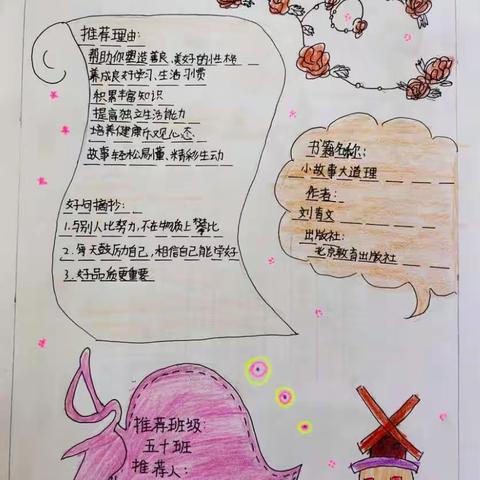 推荐理由:
帮助你塑造善良、美好的性格
养成良好学习、生活习惯
积累丰富知识
提高独立生活能力
培养健康乐观心态
故事轻松易懂、精彩生动
好句摘抄:
1.与别人比努力,不在物质上攀比
2.每天鼓励自己,相信自己能学好
3.好品质更重要
书籍名称:
小故事大道理
作者:
刘青文
出版社:
北京教育出版社
推荐班级:
五十班
推荐人: